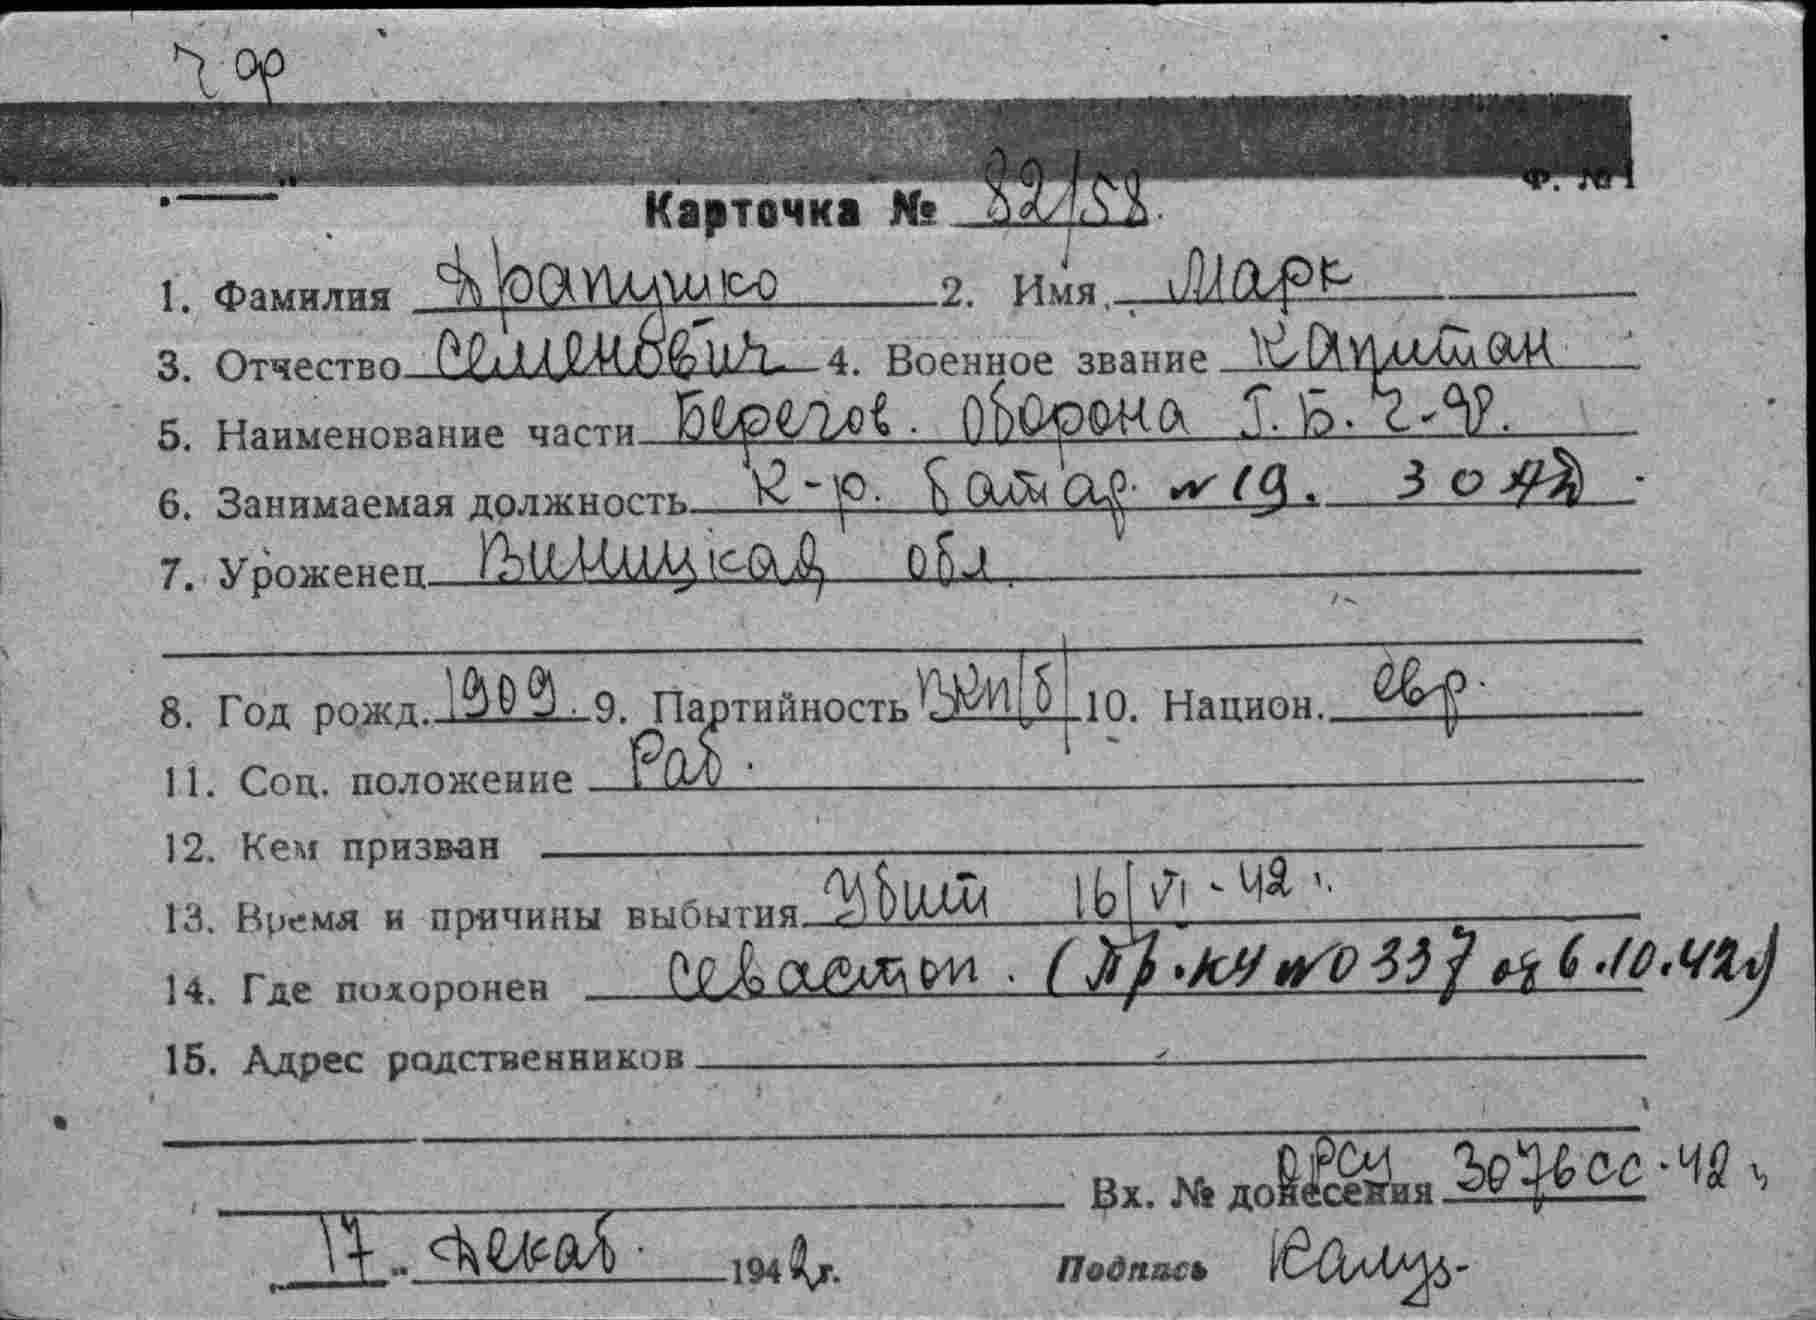 ЧФ
Ф. № 1
Карточка № 82/58.
1. Фамилия Драпушко 2. Имя Марк
3. Отчество Семенович 4. Военное звание Капитан
5. Наименование части Берегов. оборона Г.Б. Ч-Ф.
6. Занимаемая должность К-р. батар. №19. 30 АД
7. Уроженец Виницкая обл.
8. Год рожд. 1909. 9. Партийность ВКП/б/ 10. Национ. евр.
11. Соц. положение Раб.
12. Кем призван
13. Время и причины выбытия Убит 16/VI-42 г.
14. Где похоронен Севастоп. (Пр. КЧ №0337 от 6.10.42г)
15. Адрес родственников
ОРСУ
Вх. № донесения 3076сс-42 г
17 " Декаб. 1942г. Подпись